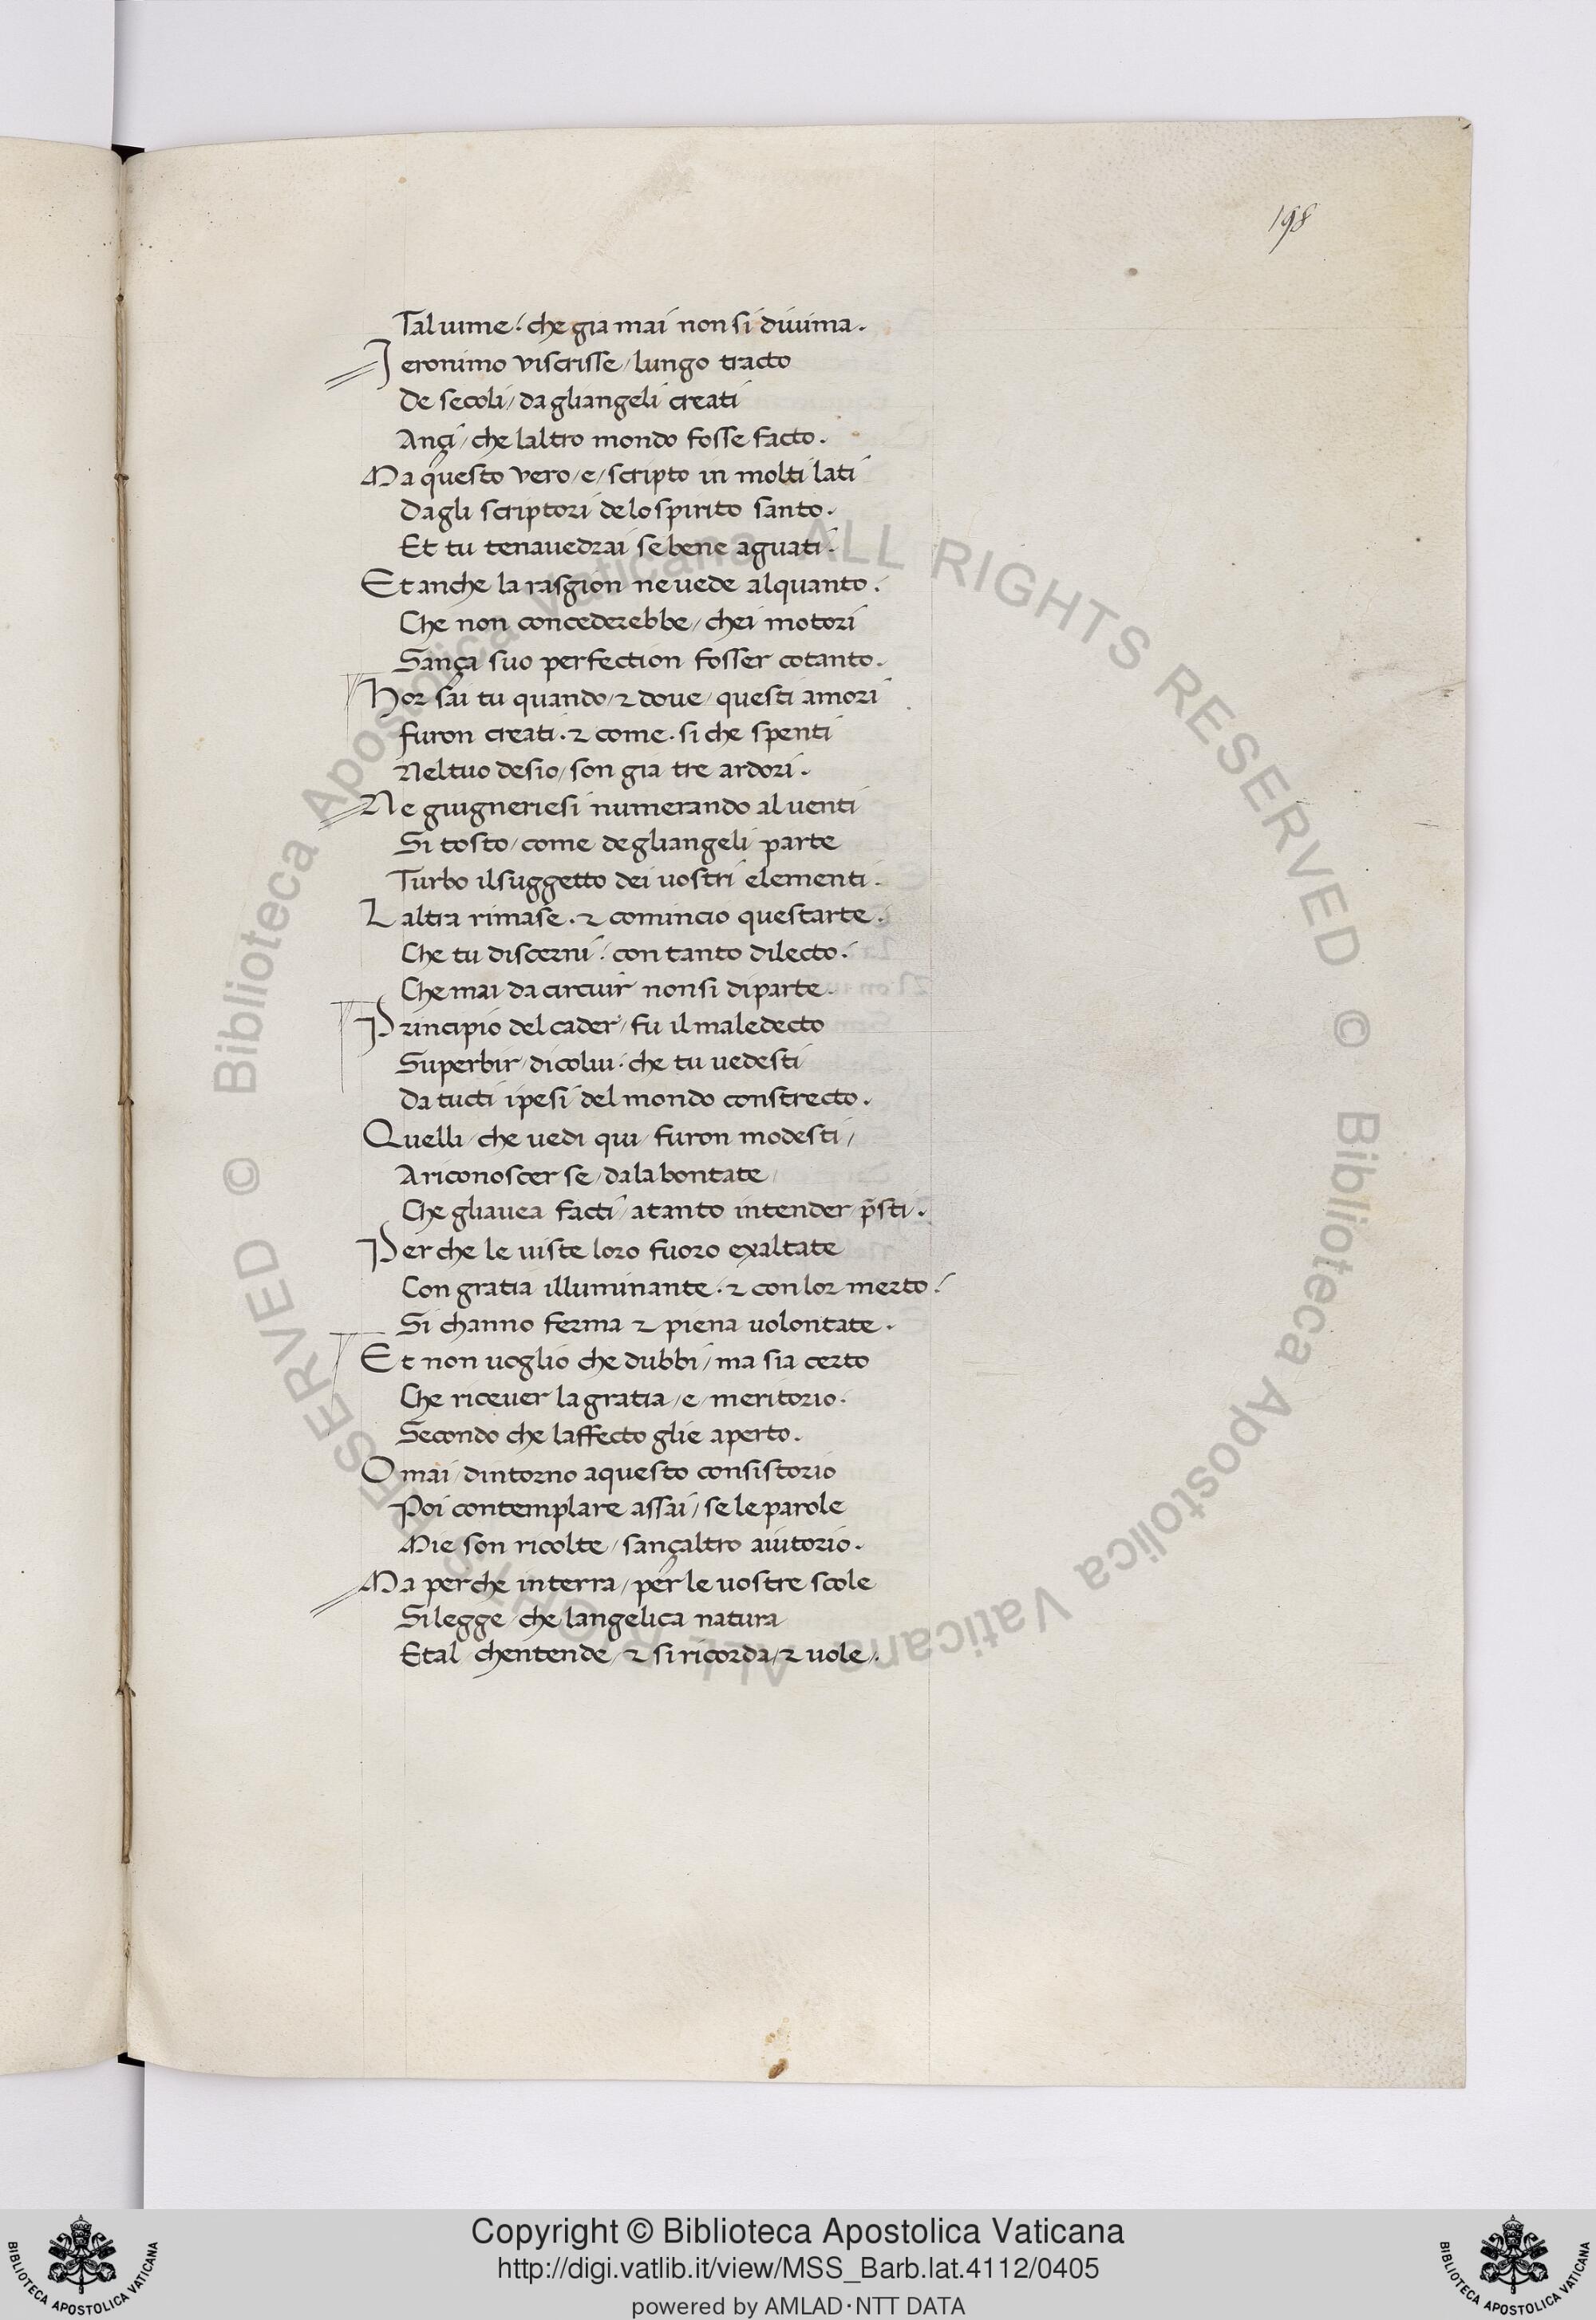 198
Tal uime: che gia mai non si diuima.
Jeronimo viscrisse / lungo tracto
De secoli / da gliangeli creati
Ançi / che laltro mondo fosse facto.
Ma questo vero / e / scripto in molti lati
Dagli scriptori de lo spirito santo.
Et tu tenauedrai se bene aguati.
Et anche la rasgion ne uede alquanto.
Che non concederebbe / chei motori
Sança suo perfection fosser cotanto.
Hor sai tu quando / ⁊ doue / questi amori
furon creati. ⁊ come. si che spenti
Nel tuo desio / son gia tre ardori.
Ne giugneriesi numerando al uenti
Si tosto / come degliangeli parte
Turbo ilsuggetto dei uostri elementi.
Laltra rimase. ⁊ comincio questarte.
Che tu discerni: con tanto dilecto:
Che mai da circuir non si diparte.
Principio del cader / fu il maledecto
Superbir / di colui. che tu uedesti
Da tucti ipesi del mondo constrecto.
Quelli / che uedi qui / furon modesti /
A riconoscer se / da la bontate /
Che gliauea facti / a tanto intender p̄sti.
Perche le uiste loro fuoro exaltate
Con gratia illuminante. ⁊ con lor merto:
Si channo ferma ⁊ piena uolontate.
Et non uoglio che dubbi / ma sia certo
Che riceuer la gratia / e / meritorio.
Secondo che laffecto glie aperto.
Omai / dintorno a questo consistorio
Poi contemplare assai / se le parole
Mie son ricolte / sançaltro aiutorio.
Ma perche in terra / per le uostre scole
Si legge / che langelica natura
Etal / chentende / ⁊ si ricorda / ⁊ uole /.
© Biblioteca Apostolica Vaticana ALL RIGHTS RESERVED © Biblioteca Apostolica Vaticana ALL RIGHTS RESERVED
BIBLIOTECA APOSTOLICA VATICANA
Copyright © Biblioteca Apostolica Vaticana
http://digi.vatlib.it/view/MSS_Barb.lat.4112/0405
powered by AMLAD·NTT DATA
BIBLIOTECA APOSTOLICA VATICANA